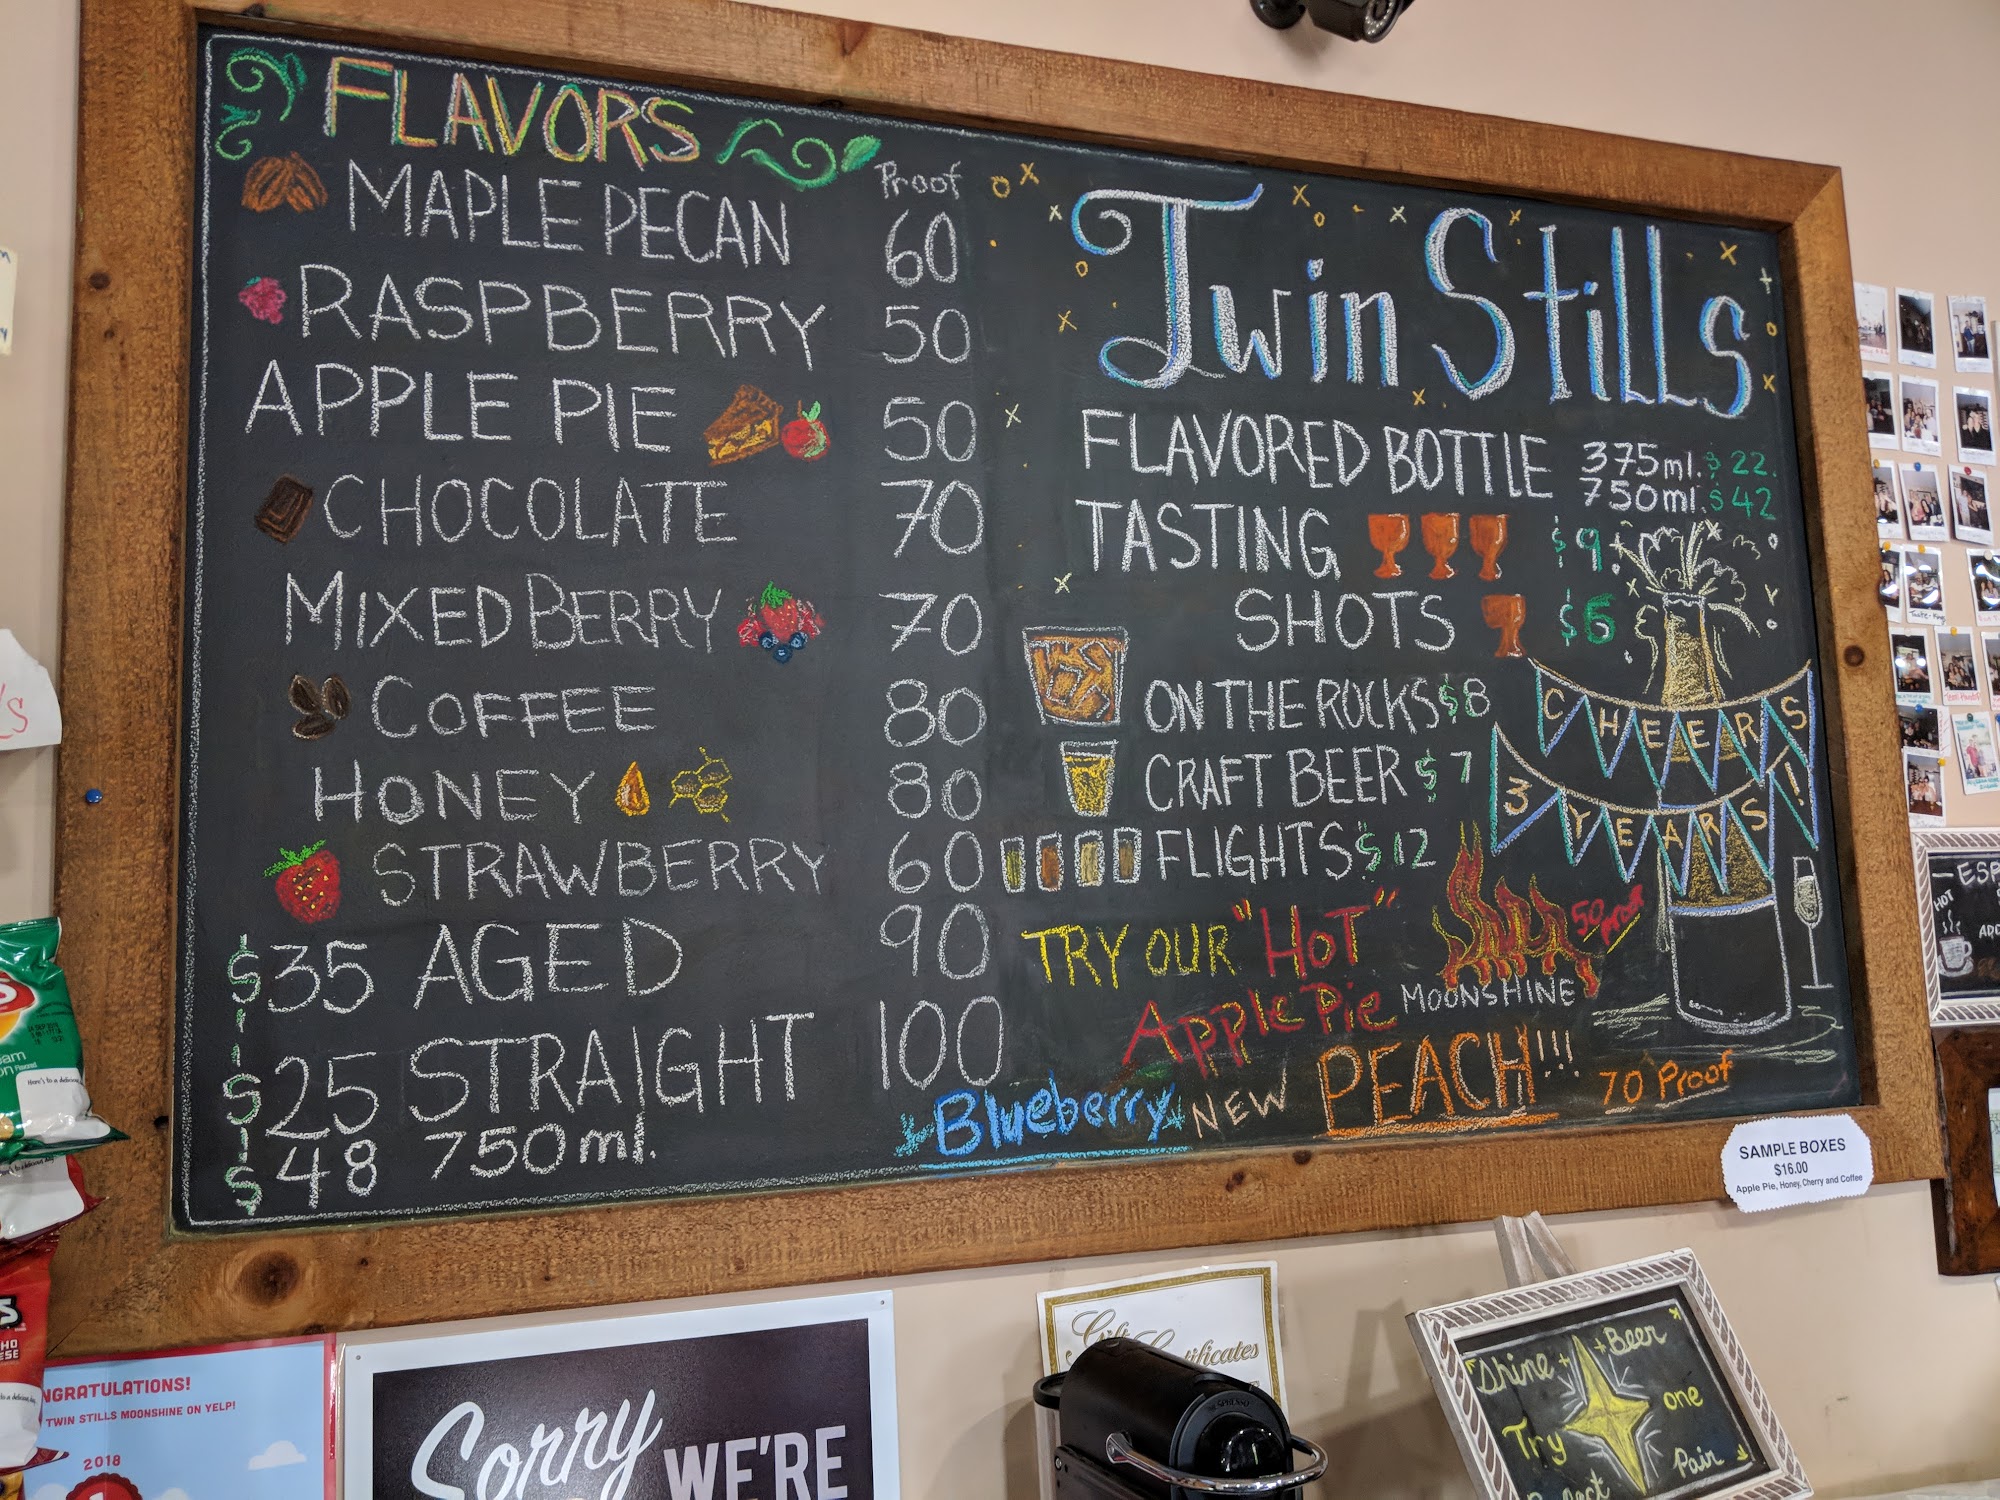 FLAVORS
Proof
MAPLE PECAN 60
RASPBERRY 50
APPLE PIE 50
CHOCOLATE 70
MIXED BERRY 70
COFFEE 80
HONEY 80
STRAWBERRY 60
$35 AGED 90
$25 STRAIGHT 100
$48 750ml.
Twin Stills
FLAVORED BOTTLE 375ml. $22.
750ml. $42
TASTING $9.
SHOTS $6
ON THE ROCKS $8
CRAFT BEER $7
FLIGHTS $12
CHEERS
3 YEARS!
TRY OUR "HOT" 50 proof
Apple Pie MOONSHINE
Blueberry NEW PEACH!!! 70 Proof
SAMPLE BOXES
$16.00
Apple Pie, Honey, Cherry and Coffee
ESP
HOT
NGRATULATIONS!
TWIN STILLS MOONSHINE ON YELP!
2018
Sorry
WE'RE
Gift
Certificates
Shine + Beer
Try one
Pair
Here's to a delicious